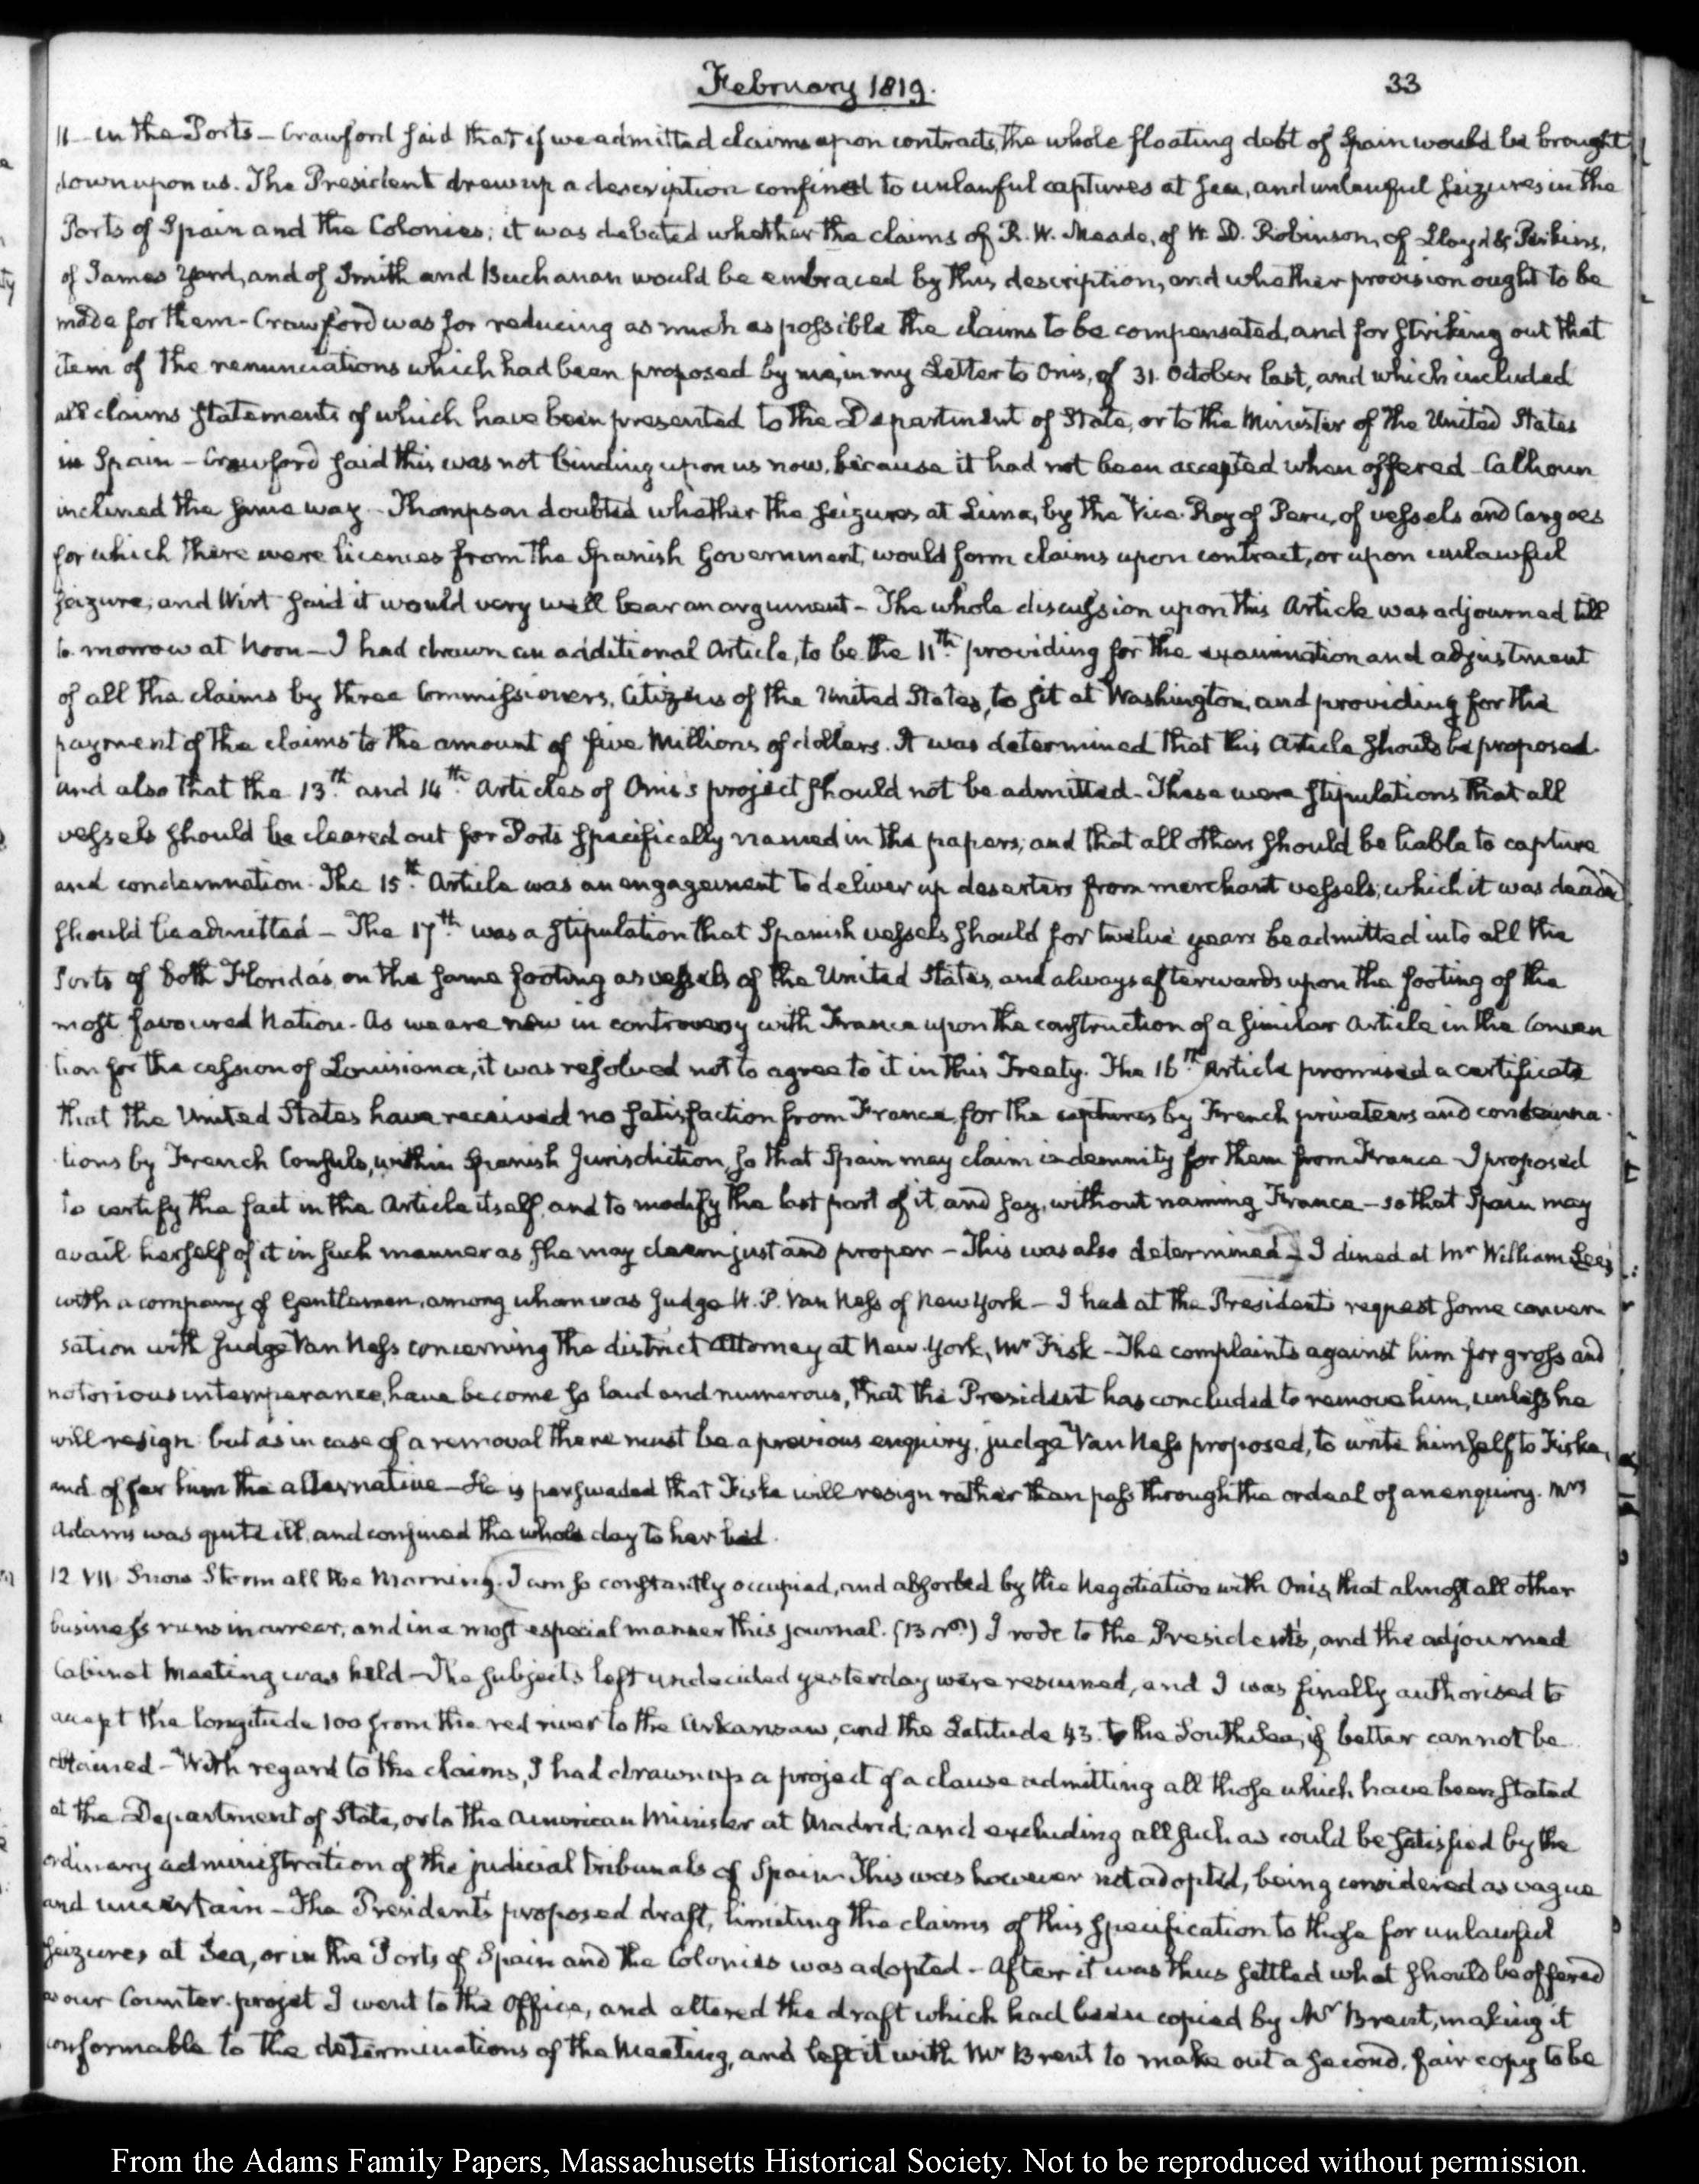 February 1819.
33
11 in the Ports — Crawford said that if we admitted claims upon contracts, the whole floating debt of Spain would be brought
down upon us. The President drew up a description confined to unlawful captures at Sea, and unlawful seizures in the
Ports of Spain and the Colonies; it was debated whether the claims of R. W. Meade, of W. D. Robinson, of Lloyd & Perkins,
of James Yard, and of Smith and Buchanan would be embraced by this description, and whether provision ought to be
made for them — Crawford was for reducing as much as possible the claims to be compensated, and for striking out that
item of the renunciations which had been proposed by me, in my Letter to Onis, of 31. October last, and which included
all claims statements of which have been presented to the Department of State, or to the Minister of the United States
in Spain — Crawford said this was not binding upon us now, because it had not been accepted when offered — Calhoun
inclined the same way — Thompson doubted whether the seizures at Lima, by the Vice-Roy of Peru, of vessels and Cargoes
for which there were licences from the Spanish Government, would form claims upon contract, or upon unlawful
seizure; and Wirt said it would very well bear an argument — The whole discussion upon this Article was adjourned till
to-morrow at Noon — I had drawn an additional Article, to be the 11th. providing for the examination and adjustment
of all the claims by three Commissioners, Citizens of the United States, to sit at Washington, and providing for the
payment of the claims to the amount of five Millions of dollars. It was determined that this Article should be proposed
and also that the 13th. and 14th. Articles of Onis's project should not be admitted — These were stipulations that all
vessels should be cleared out for Ports specifically named in the papers; and that all others should be liable to capture
and condemnation. The 15th. Article was an engagement to deliver up deserters from merchant vessels; which it was
should be admitted — The 17th. was a stipulation that Spanish vessels should for twelve years be admitted into all the
Ports of both Florida's, on the same footing as vessels of the United States, and always afterwards upon the footing of the
most favoured Nation. As we are now in controversy with France upon the construction of a similar Article in the Conven
tion for the cession of Louisiana, it was resolved not to agree to it in this Treaty. The 16th. Article promised a certificate
that the United States have received no satisfaction from France, for the captures by French privateers and condemna-
-tions by French Consuls, within Spanish Jurisdiction, so that Spain may claim indemnity for them from France — I proposed
to certify the fact in the Article itself, and to modify the last part of it and say, without naming France — so that Spain may
avail herself of it in such manner as she may deem just and proper — This was also determined — I dined at Mr William Lee's
with a company of Gentlemen, among whom was Judge W. P. Van Ness of New York — I had at the President's request some conver
sation with Judge Van Ness concerning the district Attorney at New-York, Mr Fisk — The complaints against him for gross and
notorious intemperance, have become so loud and numerous, that the President has concluded to remove him, unless he
will resign: but as in case of a removal there must be a previous enquiry, judge Van Ness proposed, to write himself to Fiske,
and offer him the alternative — He is perswaded that Fiske will resign rather than pass through the ordeal of an enquiry. Mrs
Adams was quite ill, and confined the whole day to her bed.
12 VII Snow Storm all the Morning. I am so constantly occupied, and absorbed by the Negotiation with Onis, that almost all other
business runs in arrear, and in a most especial manner this journal. I rode to the President's, and the adjourned
Cabinet Meeting was held — The subjects left undecided yesterday were resumed, and I was finally authorised to
accept the longitude 100 from the red river to the Arkansaw, and the Latitude 43. to the South Sea, if better cannot be
obtained — With regard to the claims, I had drawn up a project of a clause admitting all those which have been stated
at the Department of State, or to the American Minister at Madrid; and excluding all such as could be satisfied by the
ordinary administration of the judicial tribunals of Spain — This was however not adopted, being considered as vague
and uncertain — The President's proposed draft, limiting the claims of this specification to those for unlawful
seizures at Sea, or in the Ports of Spain and the Colonies was adopted — After it was thus settled what should be offered
as our Counter-projet I went to the Office, and altered the draft which had been copied by Mr Brent, making it
conformable to the determinations of the Meeting, and left it with Mr Brent to make out a second, fair copy to be
From the Adams Family Papers, Massachusetts Historical Society. Not to be reproduced without permission.